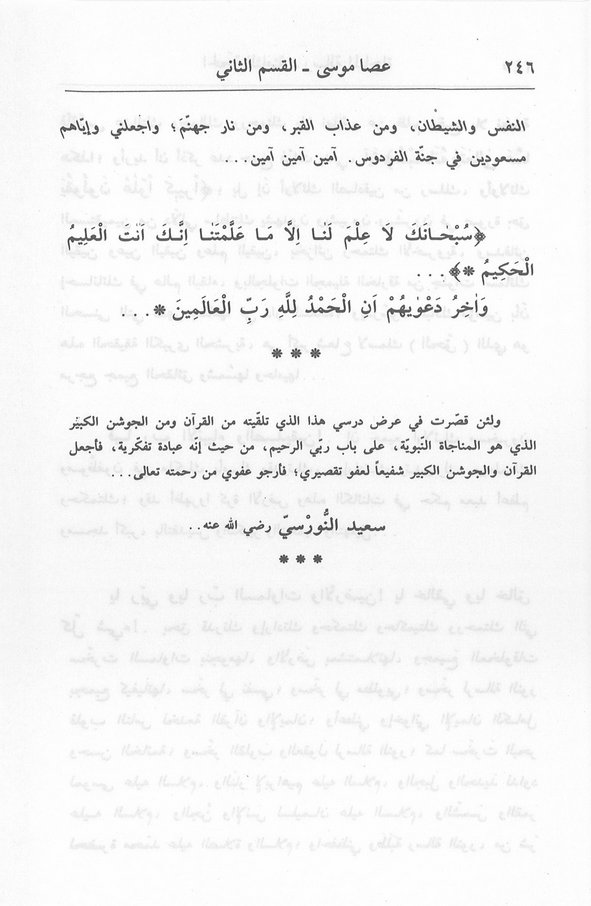 ٢٤٦ عصا موسى - القسم الثاني
النفس والشيطان، ومن عذاب القبر، ومن نار جهنّم؛ واجعلني وإيّاهم
مسعودين في جنّة الفردوس. آمين آمين آمين...
﴿سُبْحَانَكَ لَا عِلْمَ لَنَا اِلَّا مَا عَلَّمْتَنَا اِنَّكَ اَنْتَ الْعَلِيمُ
الْحَكِيمُ *﴾...
وَاٰخِرُ دَعْوٰيهُمْ اَنِ الْحَمْدُ لِلَّهِ رَبِّ الْعَالَمِينَ *...
* * *
ولئن قصّرت في عرض درسي هذا الذي تلقّيته من القرآن ومن الجوشن الكبير
الذي هو المناجاة النّبويّة، على باب ربّي الرحيم، من حيث إنّه عبادة تفكّرية، فأجعل
القرآن والجوشن الكبير شفيعاً لعفو تقصيري؛ فأرجو عفوي من رحمته تعالى...
سعيد النُّورْسيّ رضي الله عنه..
* * *